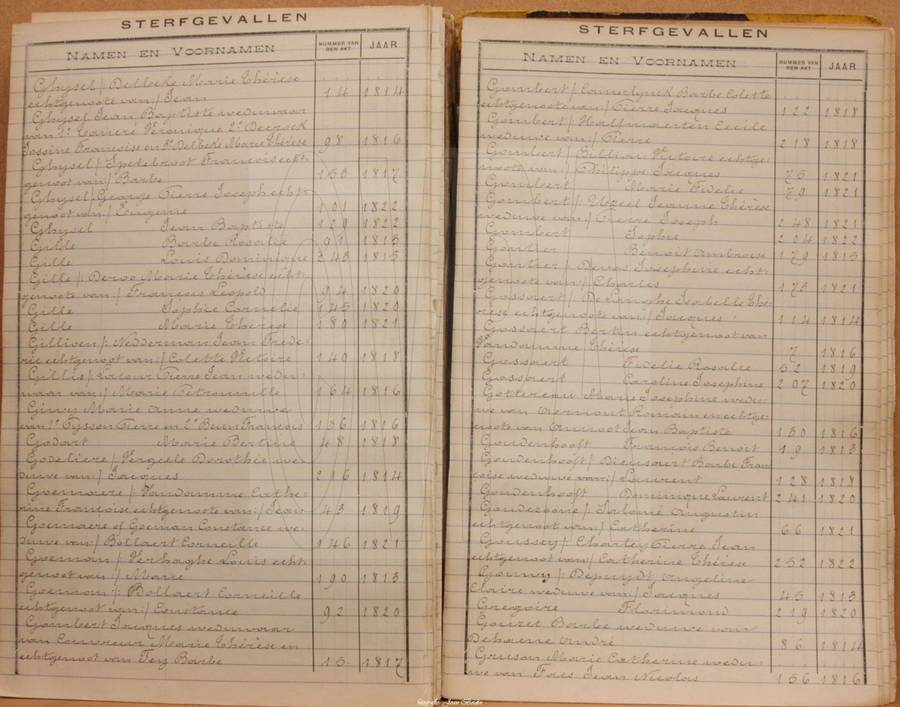 STERFGEVALLEN
NAMEN EN VOORNAMEN NUMMER VAN DEN AKT JAAR
Ghysel / Delbeke Marie Thérèse
echtgenoote van / Jean 14 1814
Ghysel Jean Baptiste weduwaar
van 1° Véronique 2°
Jossine Françoise en 3° Delbeke Marie Thérèse 98 1816
Ghysel / François echt
genoot van / Barbe 153 1817
Ghysel / George Pierre Joseph echt
genoot van / Eugenie 101 1822
Ghysel Jean Baptiste 129 1822
Gille Barbe Rosalie 91 1813
Gille Louis Dominique 243 1815
Gille / Deroo Marie Thérèse echt
genoote van / François Leopold 94 1820
Gille Sophie Cornelie 145 1820
Gille Marie Thérèse 180 1821
Gillioen / Nedderman Jean Frede
ric echtgenoot van / Colette Victoire 149 1818
Gillis / Latour Pierre Jean wedu
waar van / Marie Petronille 164 1816
Marie Anne weduwe
van 1° Tysson Pierre en 2° François 136 1816
Godart Marie Pertine 48 1818
Godeliere / Vergeele Dorothée we
duwe van / Jacques 216 1814
Goemaere / Vandamme Cathe
rine Françoise echtgenoote van / Jean 43 1819
Goemaere of Goeman Constance we
duwe van / Bollaert Corneille 146 1821
Goeman / Verhaeghe Louis echt
genoot van / Marie 190 1813
Goeman / Bollaert Corneille
echtgenoot van / Constance 92 1820
Gombert Jacques weduwaar
van Couvreur Marie Thérèse en
echtgenoot van Fey Barbe 13 1817
STERFGEVALLEN
NAMEN EN VOORNAMEN NUMMER VAN DEN AKT JAAR
Gombert / Camerlynck Barbe Colette
echtgenoote van / Pierre Jacques 122 1818
Gombert / Halfmaerten Cecile
weduwe van / Pierre 218 1818
Gombert / Victoire echtge
noote van / Philippe Jacques 75 1821
Gombert Marie Fidelie 79 1821
Gombert / Jeanne Thérèse
weduwe van / Pierre Joseph 248 1821
Gombert Sophie 204 1822
Gontier Benoit Ambroise 179 1813
Gontier / Devos Josephine echt
genoote van / Charles 173 1821
Gossaert / Isabelle Thé
rèse echtgenoote van / Jacques 114 1814
Gossaert Bertin echtgenoot van
Vandamme Thérèse 7 1816
Gossaert Fidelie Rosalie 52 1819
Gossaert Caroline Josephine 207 1820
Gottereau Marie Josephine wedu
we van Romain en echtge
noote van Jean Baptiste 130 1816
Goudenhooft François Benoit 19 1813
Goudenhooft / Barbe Fran
çoise weduwe van / Laurent 128 1818
Goudenhooft Dominique Laurent 241 1820
/ Salomé Augustin
echtgenoot van / Catherine 66 1821
Goussey / Charley Pierre Jean
echtgenoot van / Catherine Thérèse 252 1822
/ Angeline
Claire weduwe van / Jacques 45 1813
Gregoire Florimond 219 1820
Gouzet Barbe weduwe van
Dehaene André 86 1814
Gruson Marie Catherine wedu
we van Fors Jean Nicolas 156 1816